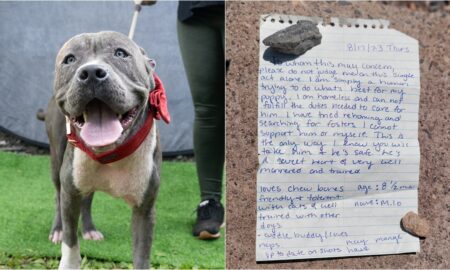 8/17/23 Thurs
To whom this may concern,
please do not judge me on this single
act alone. I am simply a human
trying to do what's best for my
puppy. I am homeless and can not
fulfill the duties needed to care for
him. I have tried rehoming and
searching for fosters. I cannot
support him or myself. This is
the only way I know you will
take him & he's safe. He's
a sweet heart of very well
mannered and trained
loves chew bones age: 8 1/2 mo
friendly & tolerant
with cats & well name:
trained with other
dogs
- cuddle buddy / loves
naps
up to date on shots have